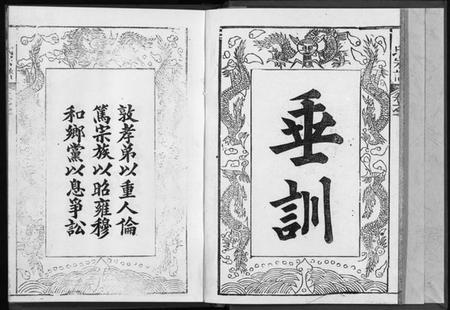 垂訓
敦孝弟以重人倫
篤宗族以昭雍穆
和鄉黨以息爭訟